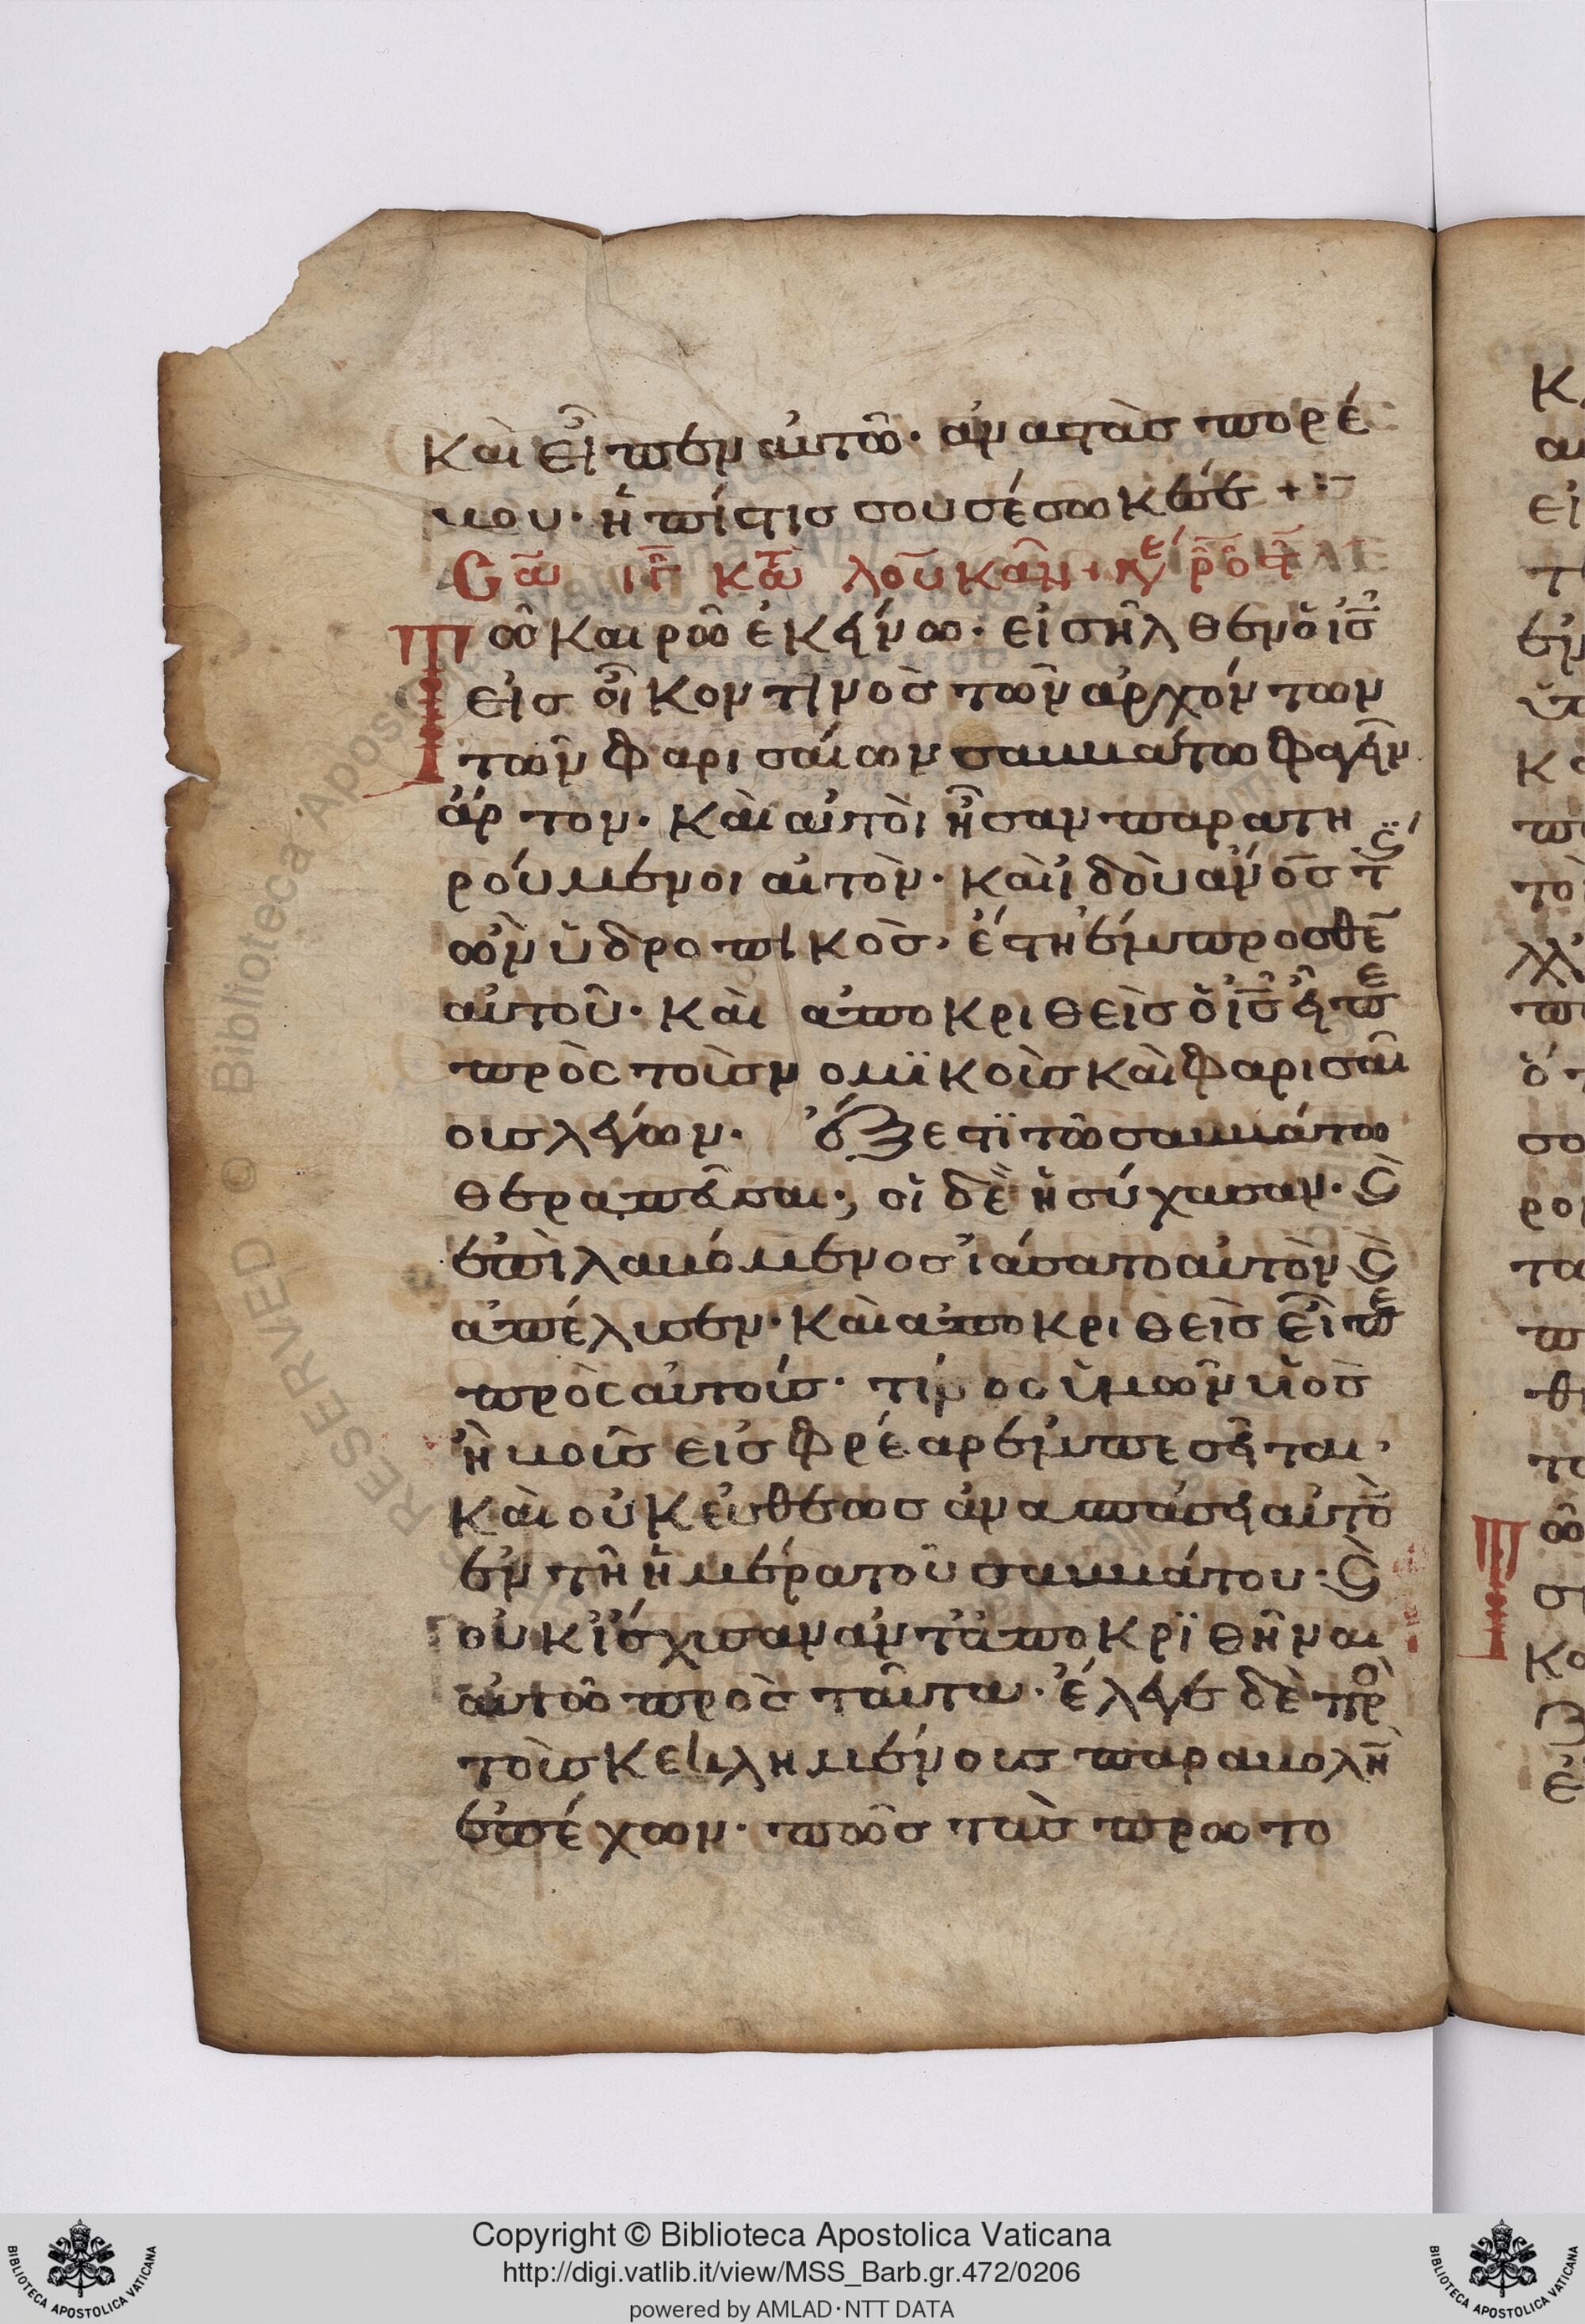 καὶ εἶπεν αὐτῶ· ἀναστὰσ πορέ
βου· ἡ πίστισ σου σέσωκέ σε +
Σα ιη κατ λουκᾶν
Τῶ καιρῶ ἐκείνω· εἰσῆλθεν ὁ ισ
εἰσ οἶκον τινὸσ τῶν ἀρχόντων
τῶν φαρισαίων σαββάτω φαγεῖν
ἄρτον· καὶ αὐτοὶ ἦσαν παρατη
ρούμενοι αυτὸν· καὶ ἰδοὺ ανοσ τισ
ὢν ὑδροπικὸσ· ἔστη ἔμπροσθε
αὐτοῦ· καὶ ἀποκριθεὶσ ὁ ισ εἶπε
πρὸς τοὺσ νομϊκοὺσ καὶ φαρισαί
ουσ λέγων· ἔξεστϊ τῶ σαββάτω
θεραπεῦσαι·, οἱ δὲ ἡσύχασαν· ϗ
ἐπὶλαβόμενοσ ἰάσατο αὐτὸν ϗ
ἀπέλυσεν· καὶ ἀποκριθεὶσ εἶπε
πρὸς αὐτούσ· τίνος ὑμῶν υἱὸσ
ἢ βοῦσ εἰσ φρέαρ ἐμπεσεῖται·
καὶ οὐκ εὐθέωσ ἀναπάσει αὐτὸ
ἐν τῆ ἡμέρα τοῦ σαββάτου· ϗ
οὐκ ἴσχυσαν ἀνταποκρϊθῆναι
αὐτῶ πρὸς ταῦτα· ἔλεγε δὲ πρ
τοὺσ κεκλημένουσ παραβολὴ
ἐπέχων· πῶσ τὰσ πρωτο
Copyright © Biblioteca Apostolica Vaticana
http://digi.vatlib.it/view/MSS_Barb.gr.472/0206
powered by AMLAD·NTT DATA
BIBLIOTECA APOSTOLICA VATICANA
BIBLIOTECA APOSTOLICA VATICANA